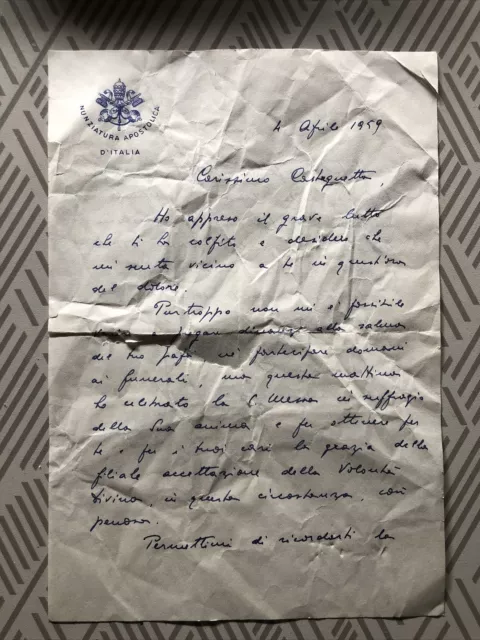 NUNZIATURA APOSTOLICA
D'ITALIA
4 Aprile 1959
Carissimo Castagnetta,
Ho appreso il grave lutto
che ti ha colpito e desidero che
mi senta vicino a te in quest'ora
del dolore.
Purtroppo non mi è possibile
e pregare dinanzi alla salma
del tuo papà né partecipare domani
ai funerali, ma questa mattina
ho celebrato la S. Messa in suffragio
della Sua anima e per ottenere per
te e per i tuoi cari la grazia della
filiale accettazione della Volontà
Divina, in questa circostanza, così
penosa.
Permettimi di ricordarti la